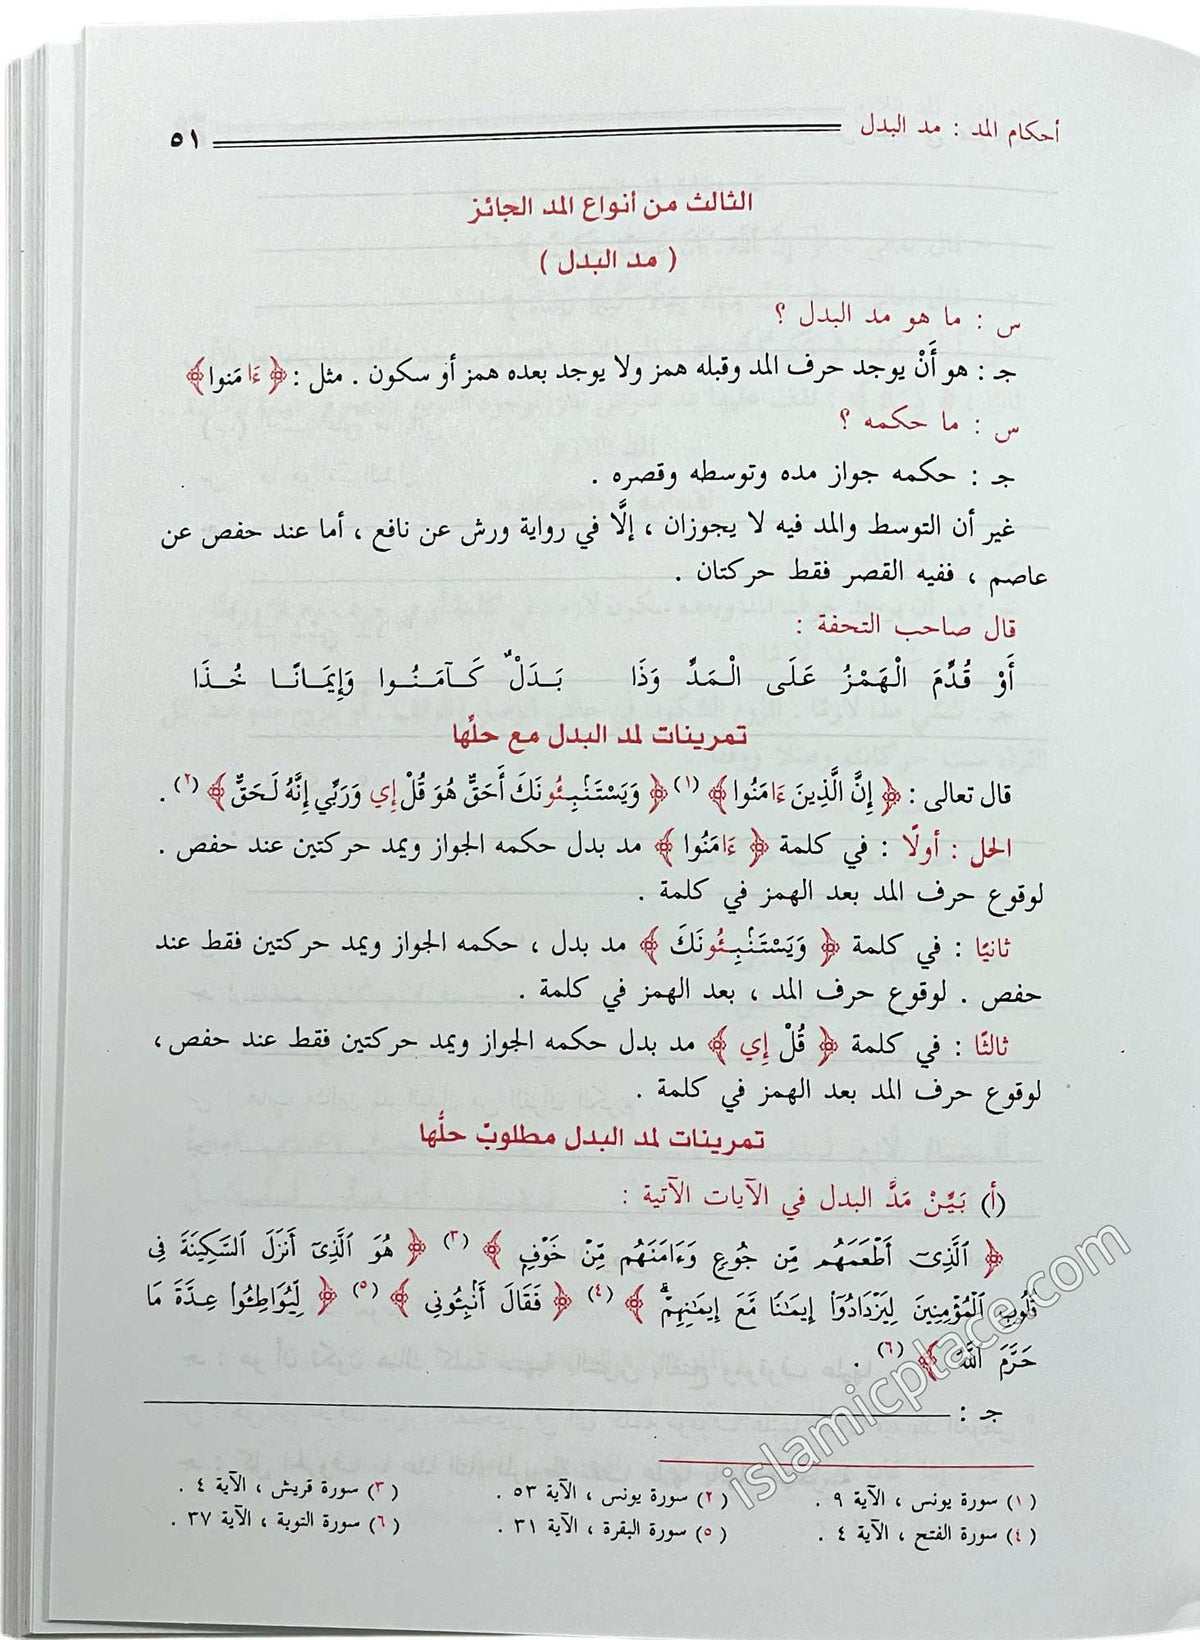 أحكام المد : مد البدل ٥١
الثالث من أنواع المد الجائز
( مد البدل )
س : ما هو مد البدل ؟
جـ : هو أَنْ يوجد حرف المد وقبله همز ولا يوجد بعده همز أو سكون . مثل : ﴿ ءَامَنوا ﴾
س : ما حكمه ؟
جـ : حكمه جواز مده وتوسطه وقصره .
غير أن التوسط والمد فيه لا يجوزان ، إلَّا في رواية ورش عن نافع ، أما عند حفص عن
عاصم ، ففيه القصر فقط حركتان .
قال صاحب التحفة :
أَوْ قُدِّمَ الْهَمْزُ عَلَى الْمَدِّ وَذَا بَدَلٌ كَآمَنُوا وَإِيمَانًا خُذَا
تمرينات لمد البدل مع حلِّها
قال تعالى : ﴿ إِنَّ الَّذِينَ ءَامَنُوا ﴾ (١) ﴿ وَيَسْتَنْۢبِـُٔونَكَ أَحَقٌّ هُوَ قُلْ إِي وَرَبِّي إِنَّهُ لَحَقٌّ ﴾ (٢) .
الحل : أولًا : في كلمة ﴿ ءَامَنُوا ﴾ مد بدل حكمه الجواز ويمد حركتين عند حفص .
لوقوع حرف المد بعد الهمز في كلمة .
ثانيًا : في كلمة ﴿ وَيَسْتَنْۢبِـُٔونَكَ ﴾ مد بدل ، حكمه الجواز ويمد حركتين فقط عند
حفص . لوقوع حرف المد ، بعد الهمز في كلمة .
ثالثًا : في كلمة ﴿ قُلْ إِي ﴾ مد بدل حكمه الجواز ويمد حركتين فقط عند حفص ،
لوقوع حرف المد بعد الهمز في كلمة .
تمرينات لمد البدل مطلوبٌ حلُّها
(أ) بَيِّنْ مَدَّ البدل في الآيات الآتية :
﴿ ٱلَّذِىٓ أَطْعَمَهُم مِّن جُوعٍ وَءَامَنَهُم مِّنْ خَوْفٍۭ ﴾ (٣) ﴿ هُوَ ٱلَّذِىٓ أَنزَلَ ٱلسَّكِينَةَ فِى
قُلُوبِ ٱلْمُؤْمِنِينَ لِيَزْدَادُوٓا۟ إِيمَٰنًا مَّعَ إِيمَٰنِهِمْۗ ﴾ (٤) ﴿ فَقَالَ أَنۢبِـُٔونِى ﴾ (٥) ﴿ لِّيُوَاطِـُٔوا۟ عِدَّةَ مَا
حَرَّمَ ٱللَّهُ ﴾ (٦) .
جـ :
(١) سورة يونس ، الآية ٩ . (٢) سورة يونس ، الآية ٥٣ . (٣) سورة قريش ، الآية ٤ .
(٤) سورة الفتح ، الآية ٤ . (٥) سورة البقرة ، الآية ٣١ . (٦) سورة التوبة ، الآية ٣٧ .
islamicplace.com